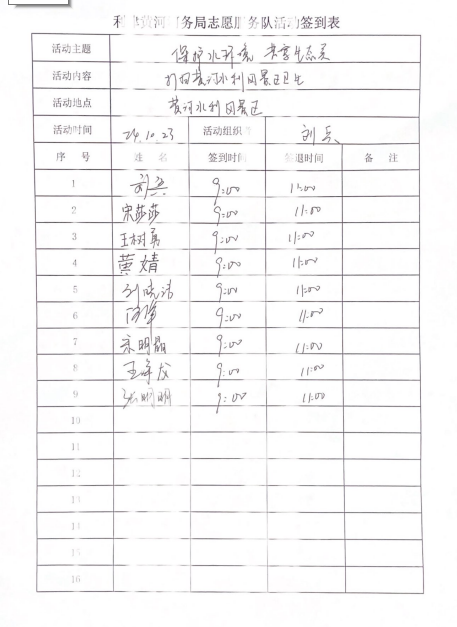 利津黄河河务局志愿服务队活动签到表
活动主题 保护水环境 共享生态美
活动内容 打扫黄河水利风景区卫生
活动地点 黄河水利风景区
活动时间 24.10.23 活动组织者 刘兵
序 号 姓 名 签到时间 签退时间 备 注
1 刘兵 9:00 11:00
2 宋莎莎 9:00 11:00
3 王树勇 9:00 11:00
4 黄婧 9:00 11:00
5 刘晓洁 9:00 11:00
6 9:00 11:00
7 宗明晶 9:00 11:00
8 9:00 11:00
9 张明明 9:00 11:00
10
11
12
13
14
15
16